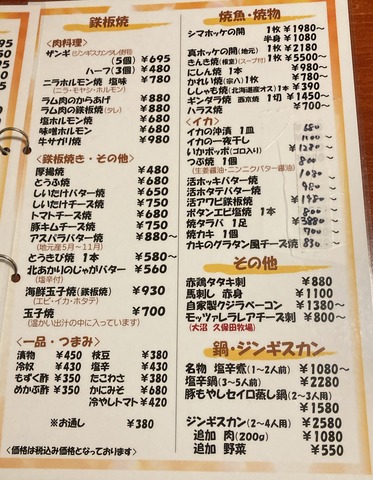 鉄板焼
<肉料理>
ザンギ(ジンギスカンタレ使用)
(5個) ¥695
ハーフ(3個) ¥480
ニラホルモン焼 塩味 ¥780
(ニラ・モヤシ・ホルモン)
ラム肉のからあげ ¥880
ラム肉の鉄板焼(タレ) ¥880
塩ホルモン焼 ¥680
味噌ホルモン焼 ¥680
牛サガリ焼 ¥980
<鉄板焼き・その他>
厚揚焼 ¥480
とうふ焼 ¥580
しいたけバター焼 ¥650
しいたけチーズ焼 ¥680
トマトチーズ焼 ¥680
豚キムチーズ焼 ¥780
アスパラバター焼 ¥880~
(地元産5月~11月)
とうきび焼 1本 ¥580~
北あかりのじゃがバター ¥560
(塩辛付)
海鮮玉子焼(鉄板焼) ¥930
(エビ・イカ・ホタテ)
玉子焼 ¥700
(温かい出汁の中に入っています)
一品・つまみ
漬物 ¥450 枝豆 ¥380
冷奴 ¥430 塩辛 ¥380
もずく酢 ¥350 たこわさ ¥380
めかぶ酢 ¥350 かにみそ ¥680
冷やしトマト ¥420
※お通し ¥380
<価格は税込み価格となっております>
焼魚・焼物
シマホッケの開 1枚 ¥1980~
半身 ¥1080~
真ホッケの開(地元) 1枚 ¥2180
きんき焼(根室)(スープ付) 1枚 ¥5500~
にしん焼 1本 ¥980~
かれい焼(宗八) 1枚 ¥780~
ししゃも焼(北海道産オス) 1本 ¥380~
ギンダラ焼 西京焼 1切 ¥1450~
ハラス焼 ¥700~
<イカ>
イカの沖漬 1皿
イカの一夜干し
いかポッポ(ゴロ入り) ¥1280
つぶ焼 1個
(生姜醤油・ニンニクバター醤油)
活ホッキバター焼
活ホタテバター焼
活アワビ鉄板焼
ボタンエビ塩焼 1本
焼タラバ 1足
焼カキ 1個
カキのグラタン風チーズ焼
その他
赤鶏タタキ刺 ¥880
馬刺し 赤身 ¥1080
自家製クジラベーコン ¥1380~
モッツァレラレアチーズ刺 ¥800~
(大沼 久保田牧場)
鍋・ジンギスカン
名物 塩辛煮(1~2人前) ¥1080~
塩辛鍋(3~5人前) ¥2280
豚もやしセイロ蒸し鍋(2~3人前)
¥1580
ジンギスカン(2~4人用) ¥2580
追加 肉(200g) ¥1080
追加 野菜 ¥550